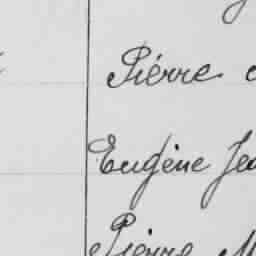 Piérre
Eugène Jea
Pierre M